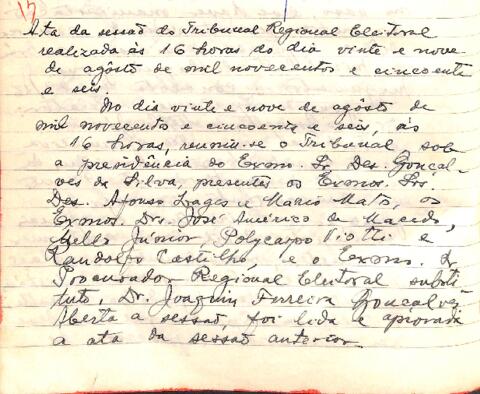 17
Ata da sessão do Tribunal Regional Eleitoral
realizada às 16 horas do dia vinte e nove
de agôsto de mil novecentos e cincoenta
e seis.
No dia vinte e nove de agôsto de
mil novecentos e cincoenta e seis, às
16 horas, reuniu-se o Tribunal, sob
a presidência do Exmo. Sr. Des. Gonçal-
ves da Silva, presentes os Exmos. Srs.
Des. Afonso Lages e Mario Matos, os
Exmos. Drs. José Américo de Macedo,
Mello Júnior, Polycarpo Viotti e
Randolfo Castilho, e o Exmo. Sr.
Procurador Regional Eleitoral substi-
tuto, Dr. Joaquim Ferreira Gonçalves.
Aberta a sessão, foi lida e aprovada
a ata da sessão anterior.